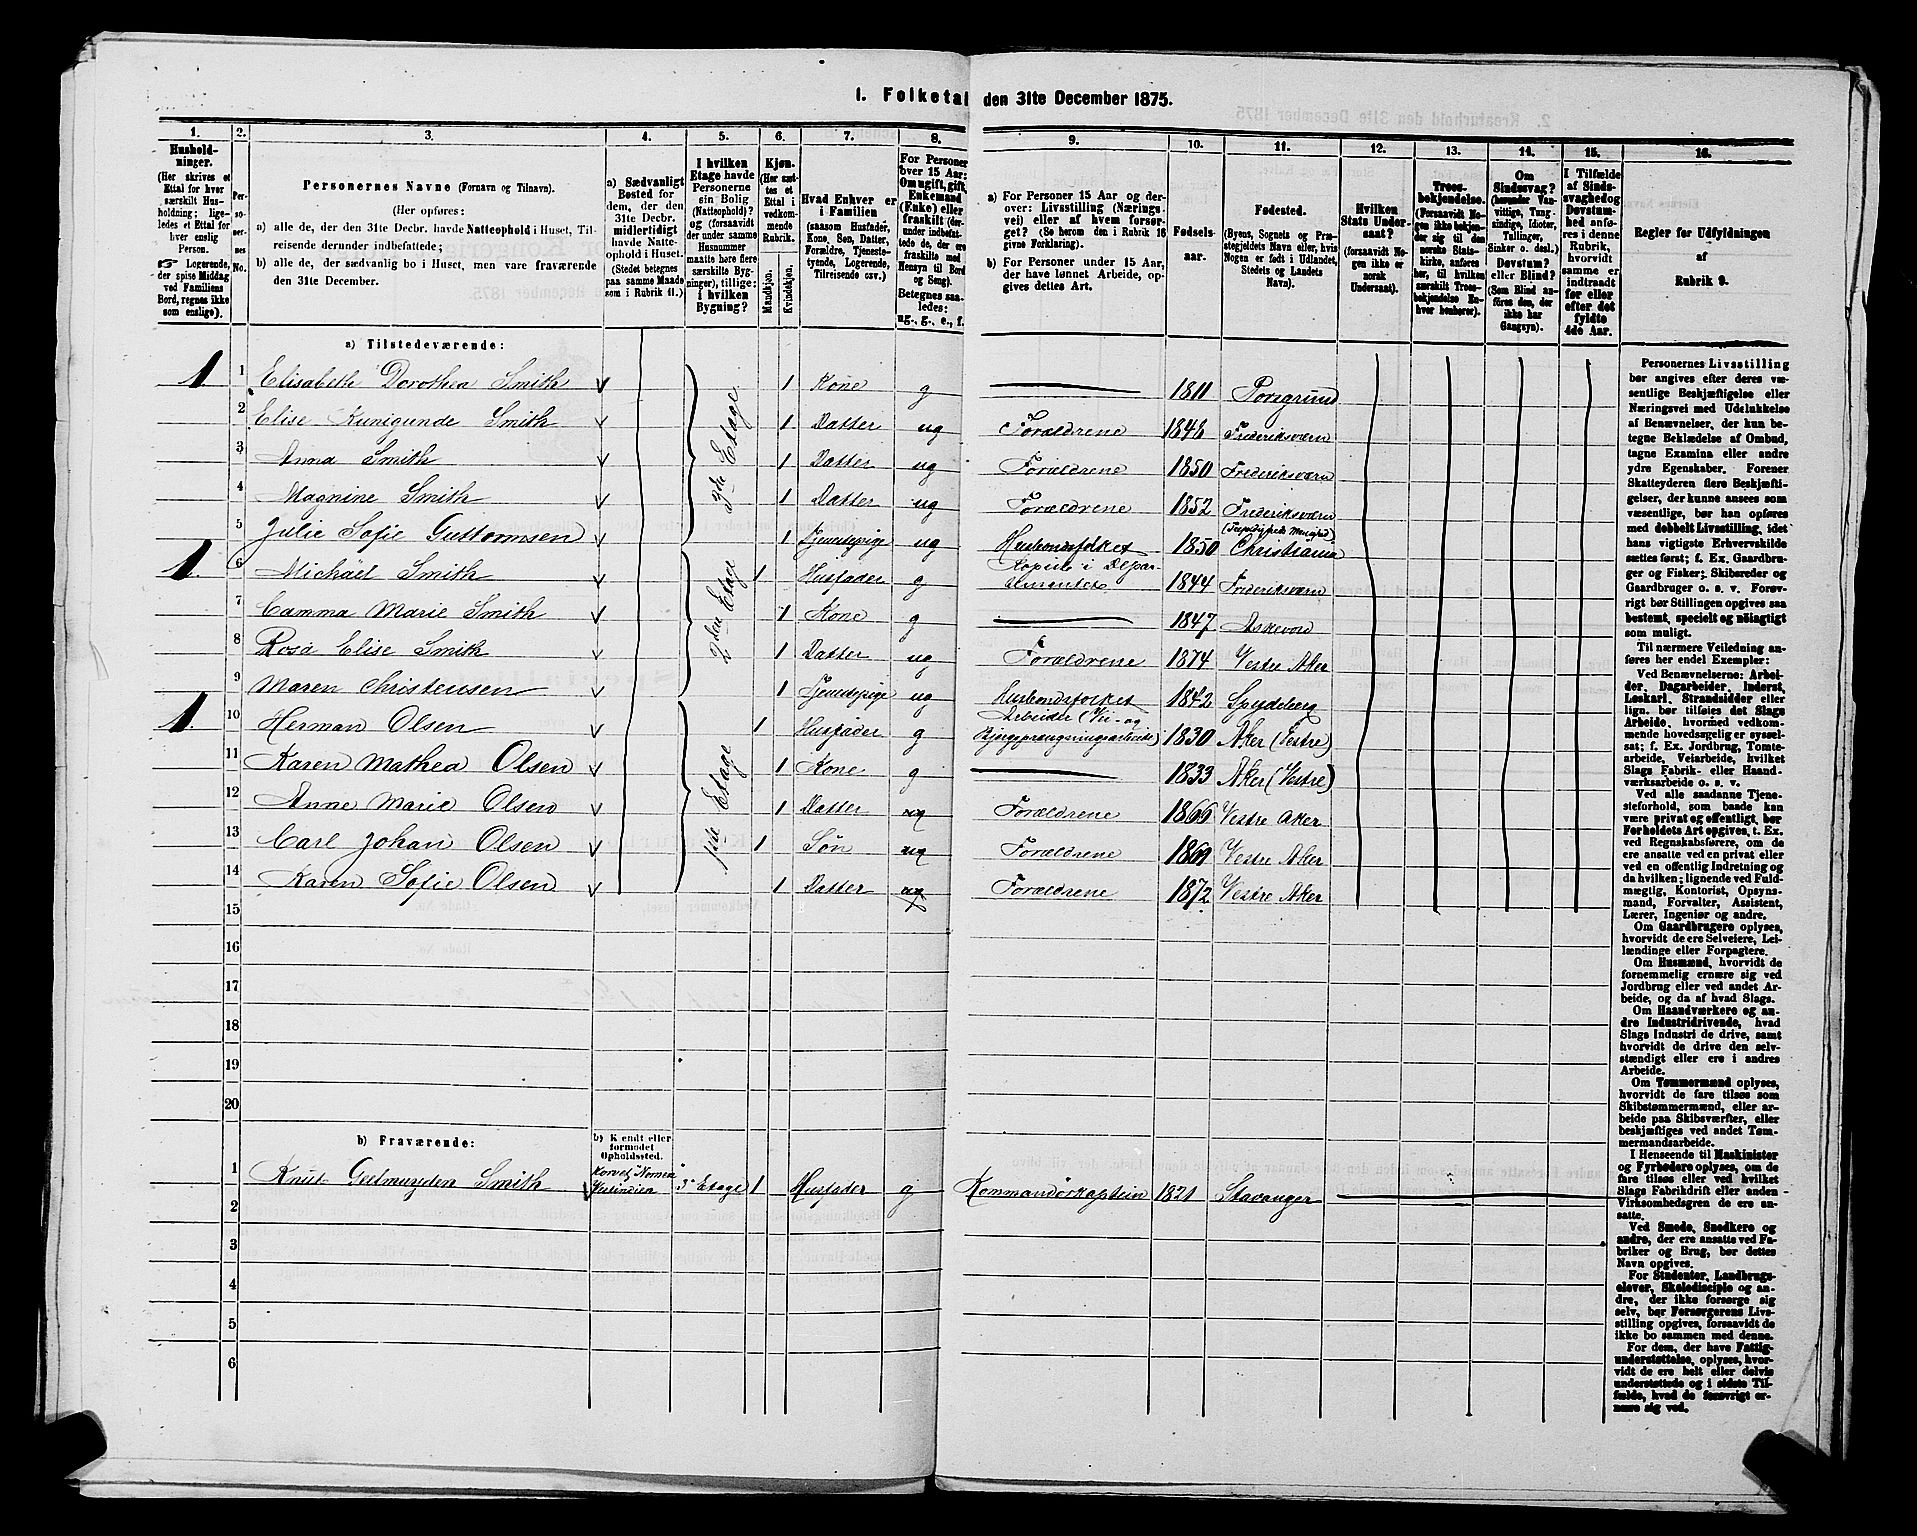 1. Folketal den 31te December 1875.
1. 2. 3. 4. 5. 6. 7. 8. 9. 10. 11. 12. 13. 14. 15. 16.
Hushold-
ninger.
(Her skrives et
Ettal for hver
særskilt Hus-
holdning; lige-
ledes et Ettal for
hver enslig
Person.
☞ Logerende,
der spise Middag
ved Familiens
Bord, regnes ikke
som enslige).
Per-
so-
ner-
nes
No.
Personernes Navne (Fornavn og Tilnavn).
(Her opføres:
a) alle de, der den 31te Decbr. havde Natteophold i Huset, Til-
reisende derunder indbefattede;
b) alle de, der sædvanlig bo i Huset, men vare fraværende
den 31te December.
a) Sædvanligt
Bosted for
dem, der den
31te Decbr.
midlertidigt
havde Natte-
ophold i Huset.
(Stedet betegnes
paa samme Maade
som i Rubrik 11.)
I hvilken
Etage havde
Personerne
sin Bolig
(Natteophold)?
og (forsaavidt
der under samme
Husnummer
maatte høre flere
særskilte Byg-
ninger), tillige:
i hvilken
Bygning?
Kjøn.
(Her sæt-
tes et
Ettal i
vedkom-
mende
Rubrik.
Mandkjøn.
Kvindekjøn.
Hvad Enhver er
i Familien
(saasom Husfader,
Kone, Søn, Datter,
Forældre, Tjeneste-
tyende, Logerende,
Tilreisende osv.)
For Personer
over 15 Aar:
Om ugift, gift,
Enkemand
(Enke) eller
fraskilt (der-
under indbefat-
tede de, der ere
fraskilte med
Hensyn til Bord
og Seng).
Betegnes saa-
ledes:
ug., g., e., f.
a) For Personer 15 Aar og der-
over: Livsstilling (Nærings-
vei) eller af hvem forsør-
get? (Se herom den i Rubrik 16
givne Forklaring).
b) For Personer under 15 Aar,
der have lønnet Arbeide, op-
gives dettes Art.
Fødsels-
aar.
Fødested.
(Byens, Sognets og Præ-
stegjeldets Navn eller, hvis
Nogen er født i Udlandet,
Stedets og Landets
Navn).
Hvilken
Stats Under-
saat?
(forsaavidt No-
gen ikke er
norsk
Undersaat).
Troes-
bekjendelse.
(Forsaavidt No-
gen ikke bekjen-
der sig til den
norske Stats-
kirke, anføres
her, til hvilken
særskilt Troes-
bekjendelse En-
hver henhører).
Om
Sindssvag?
(herunder Van-
vittige, Tung-
sindige, Idioter,
Tullinger,
Sinker o. desl.)
Døvstum?
eller Blind?
(Som Blind an-
føres den, der
ikke har
Gangsyn).
I Tilfælde
af Sinds-
svaghed og
Døvstum-
hed anfø-
res i denne
Rubrik,
hvorvidt
samme er
indtraadt
før eller
efter det
fyldte
4de Aar.
Regler for Udfyldningen
af
Rubrik 9.
a) Tilstedeværende:
1 1 Elisabeth Dorothea Smith 3die Etage 1 Kone g 1811 Porsgrund
2 Elise Kunigunde Smith 1 Datter ug Forældrene 1848 Frederiksværn
3 Anna Smith 1 Datter ug Forældrene 1850 Frederiksværn
4 Magnine Smith 1 Datter ug Forældrene 1852 Frederiksværn
5 Julie Sofie Guttormsen 1 Tjenestepige ug Husbondsfolket 1850 Christiania
1 6 Michäel Smith 2den Etage 1 Husfader g Kopist i Depar-
tementet 1844 Frederiksværn
7 Camma Marie Smith 1 Kone g 1847 Askevold
8 Rosa Elise Smith 1 Datter ug Forældrene 1874 Vestre Aker
9 Maren Christensen 1 Tjenestepige ug Husbondsfolket 1842 Spydeberg
1 10 Herman Olsen 1ste Etage 1 Husfader g Arbeider (Vei- og
1830 Aker (Vestre)
11 Karen Mathea Olsen 1 Kone g 1833 Aker (Vestre)
12 Anne Marie Olsen 1 Datter ug Forældrene 1866 Vestre Aker
13 Carl Johan Olsen 1 Søn ug Forældrene 1869 Vestre Aker
14 Karen Sofie Olsen 1 Datter ug Forældrene 1872 Vestre Aker
15
16
17
18
19
20
b) Fraværende:
b) Kjendt eller
formodet
Opholdssted.
1 Knut Smith Korvet "Nornen"
Vestindien 3 Etage 1 Husfader g Kommandørkaptein Stavanger
2
3
4
5
6
Personernes Livsstilling
bør angives efter deres væ-
sentlige Beskjæftigelse eller
Næringsvei med Udelukkelse
af Benævnelser, der kun be-
tegne Beklædelse af Ombud,
tagne Examina eller andre
ydre Egenskaber. Forener
Skatteyderen flere Beskjæfti-
gelser, der kunne ansees som
væsentlige, bør han opføres
med dobbelt Livsstilling, idet
hans vigtigste Erhvervskilde
sættes først; f. Ex. Gaardbru-
ger og Fisker; Skibsreder og
Gaardbruger o. s. v. Forøv-
rigt bør Stillingen opgives saa
bestemt, specielt og nøiagtigt
som muligt.
Til nærmere Veiledning an-
føres her endel Exempler:
Ved Benævnelserne: Arbei-
der, Dagarbeider, Inderst,
Løskarl, Strandsidder eller
lign. bør tilføies det Slags
Arbeide, hvormed vedkom-
mende hovedsagelig er syssel-
sat; f. Ex. Jordbrug, Tomte-
arbeide, Veiarbeide, hvilket
Slags Fabrik- eller Haand-
værksarbeide o. s. v.
Ved alle saadanne Tjene-
steforhold, som baade kan
være privat og offentligt, bør
Forholdets Art opgives, t. Ex.
ved Regnskabsførere, om de
ere ansatte ved en privat eller
ved en offentlig Indretning og
da hvilken; lignende ved Fuld-
mægtig, Kontorist, Opsyns-
mand, Forvalter, Assistent,
Lærer, Ingeniør og andre.
Om Gaardbrugere oplyses,
hvorvidt de ere Selveiere, Lei-
lændinge eller Forpagtere.
Om Husmænd, hvorvidt de
fornemmelig ernære sig ved
Jordbrug eller ved andet Ar-
beide, og da af hvad Slags.
Om Haandværkere og an-
dre Industridrivende, hvad
Slags Industri de drive, samt
hvorvidt de drive den selv-
stændigt eller ere i andres
Arbeide.
Om Tømmermænd oplyses,
hvorvidt de fare tilsøs som
Skibstømmermænd, eller ar-
beide paa Skibsværfter, eller
beskjæftiges ved andet Tøm-
mermandsarbeide.
I Henseende til Maskinister
og Fyrbødere oplyses, om de
fare tilsøs eller ved hvilket
Slags Fabrikdrift eller anden
Virksomhedsgren de ere an-
satte.
Ved Smede, Snedkere og
andre, der ere ansatte ved Fa-
briker og Brug, bør dettes
Navn opgives.
For Studenter, Landbrugs-
elever, Skoledisciple og an-
dre, der ikke forsørge sig
selv, bør Forsørgerens Livs-
stilling opgives, forsaavidt de
ikke bo sammen med denne.
For dem, der have Fattig-
understøttelse, oplyses, hvor-
vidt de ere helt eller delvis
understøttede og i sidste Til-
fælde, hvad de forøvrigt er-
nære sig ved.